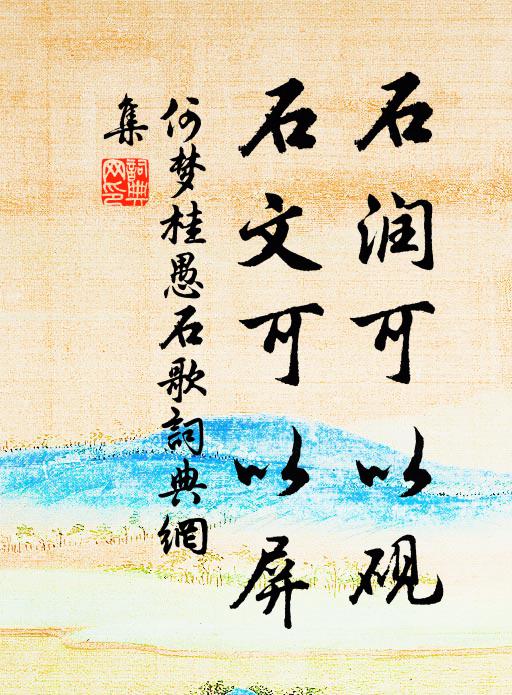 石润可以砚
石文可以屏
何梦桂愚石歌詞典網
集
詞典网印